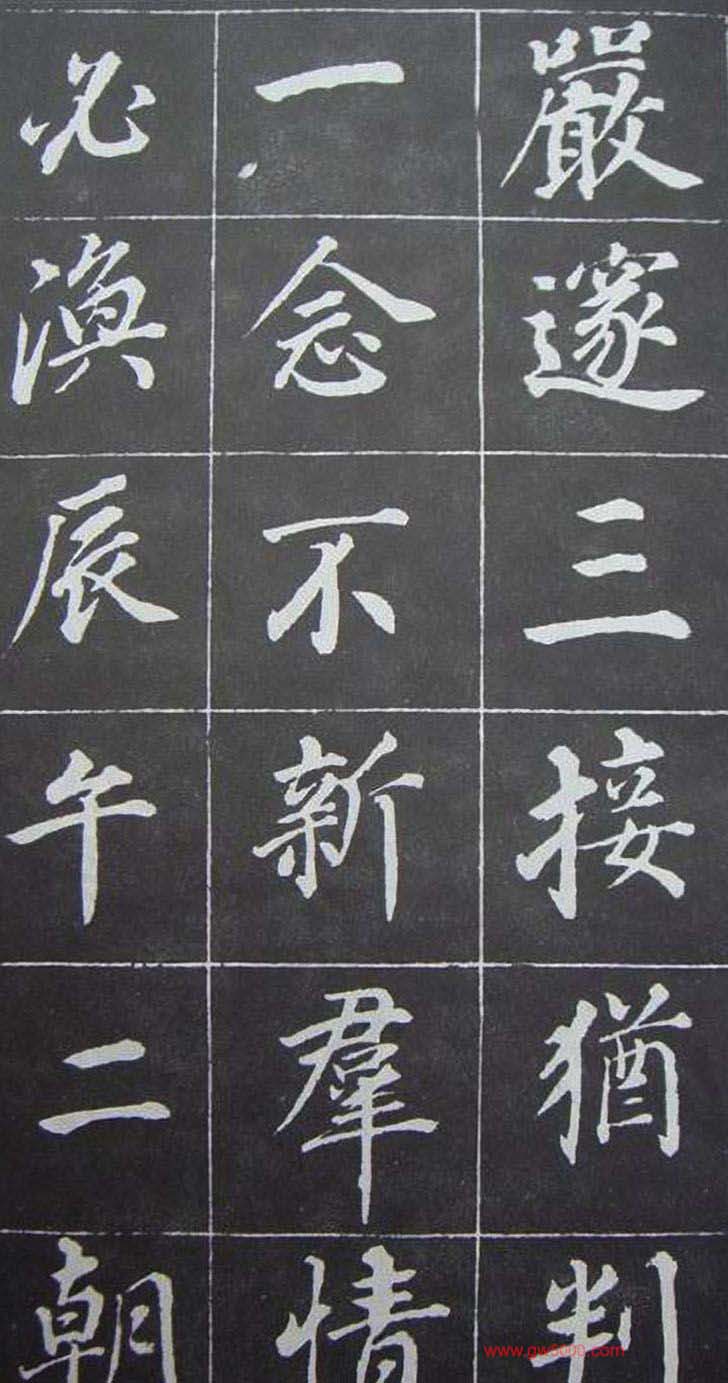 嚴邃三接猶判
一念不新羣情
必渙辰午二朝
www.gw5000.com